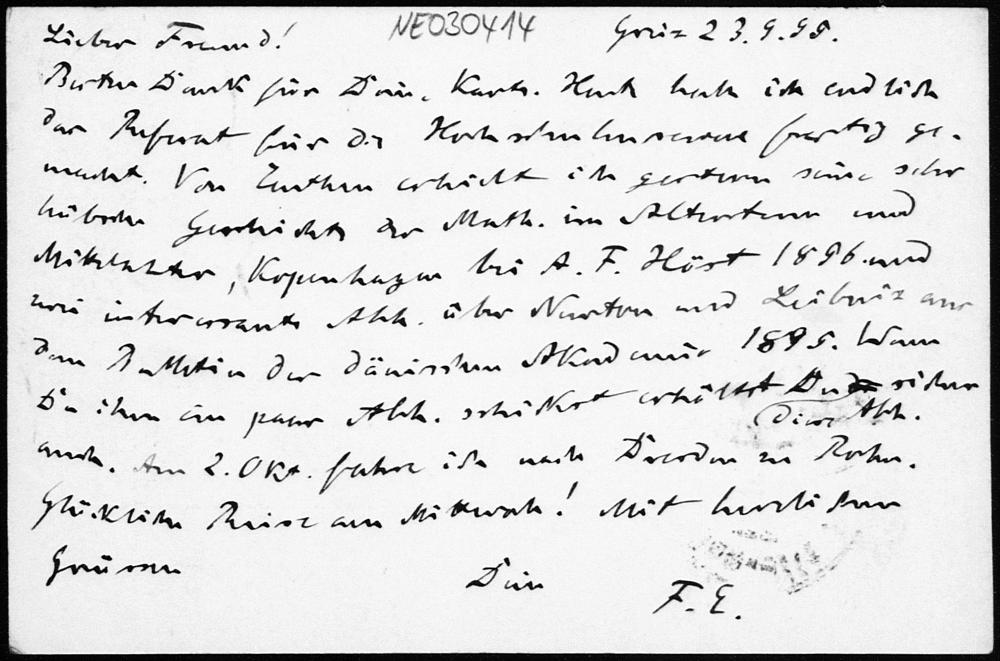 NE030414
Lieber Freund! Greiz 23.9.95.
Besten Dank für Deine Karte. Heute habe ich endlich
das Referat für die Hochschulmisere fertig ge-
macht. Von Zeuthen erhielt ich gestern seine sehr
hübsche Geschichte der Math. im Altertum und
Mittelalter, Kopenhagen bei A. F. Höst 1896 und
zwei interessante Abh. über Newton und Leibniz aus
dem Bulletin der dänischen Akademie 1895. Wenn
Du ihm ein paar Abh. schickst erhältst Du sicher
diese Abh.
auch. Am 2. Okt. fahre ich nach Dresden zu Rohn.
Glückliche Reise am Mittwoch! Mit herzlichen
Grüssen Dein
F. E.